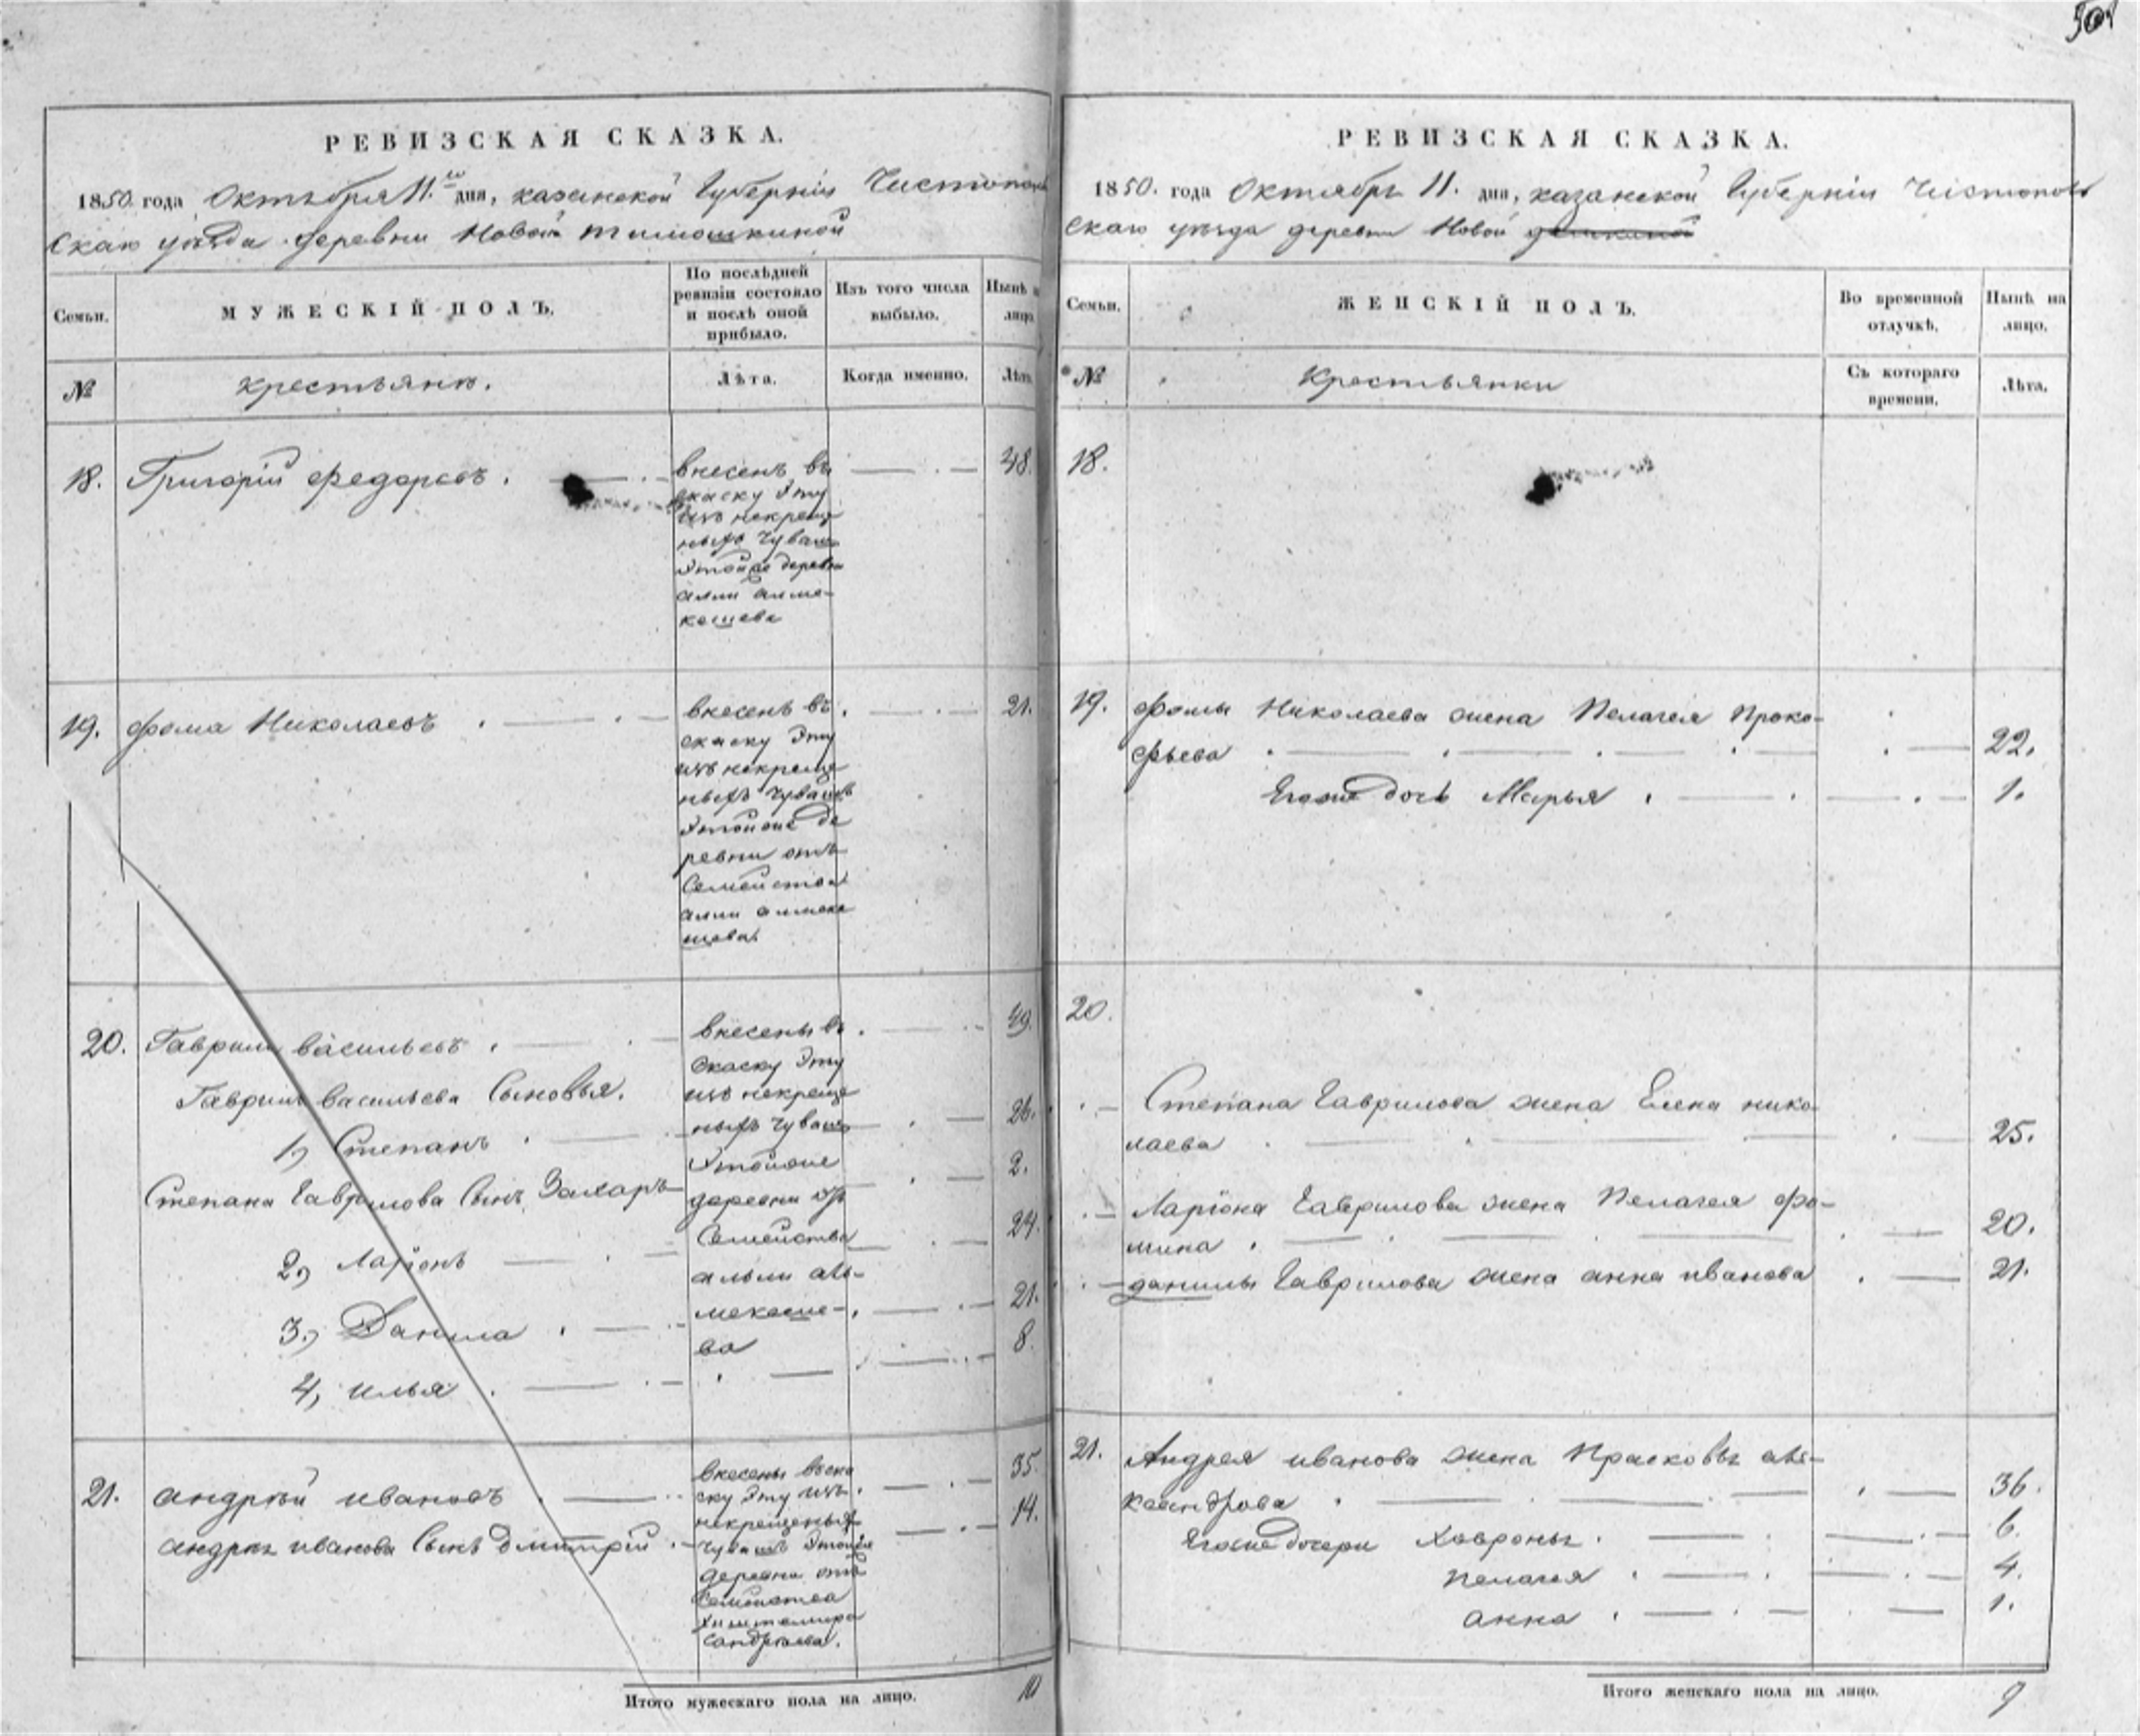 РЕВИЗСКАЯ СКАЗКА.
1850. года Октября 11.го дня, казанской Губернiи Чистополь
скаго уѣзда деревни Новой тимошкиной
Семьи.
МУЖЕСКIЙ ПОЛЪ.
По послѣдней
ревизiи состояло
и послѣ оной
прибыло.
Изъ того числа
выбыло.
Нынѣ на
лицо.
№
крестьянъ.
Лѣта.
Когда именно.
Лѣта.
18. Григорiй Федоровъ.
внесенъ въ
скаску эту
изъ некреще
ныхъ чувашъ
этойже деревни
алми алме-
кешева
48.
19. фома Николаевъ
внесенъ въ
скаску эту
изъ некреще
ныхъ чувашъ
этойже де
ревни отъ
Семейства
алми алмеке
шева.
21.
20. Гаврила васильевъ
49.
Гаврилы васильева Сыновья.
1, Степанъ
26.
Степана Гаврилова Сынъ Захаръ
2.
2, Ларiонъ
24.
3, Данила
21.
4, илья
8.
внесены въ
скаску эту
изъ некреще
ныхъ чувашъ
этойже
деревни
Семейства
альми аль-
мекеше-
ва
21. андрѣй ивановъ
35.
андрея иванова Сынъ Дмитрiй
14.
внесены въ ска
ску эту изъ
некрещеныхъ
чувашъ этойже
деревни отъ
Семейства
Итого мужескаго пола на лицо.
10
РЕВИЗСКАЯ СКАЗКА.
1850. года Октября 11. дня, казанской Губернiи Чистополь
скаго уѣзда деревни Новой
Семьи.
ЖЕНСКIЙ ПОЛЪ.
Во временной
отлучкѣ.
Нынѣ на
лицо.
№
Крестьянки
Съ котораго
времени.
Лѣта.
18.
19. фомы Николаева жена Пелагея Проко-
фьева
22.
Егоже дочь Марья
1.
20.
Степана Гаврилова жена Елена нико
лаева
25.
Ларiона Гаврилова жена Пелагея фо-
мина
20.
данилы Гаврилова жена анна иванова
21.
21. Андрея иванова жена Прасковья але-
ксандрова
36.
Егоже дочери Хавронья
6.
пелагея
4.
анна
1.
Итого женскаго пола на лицо.
9